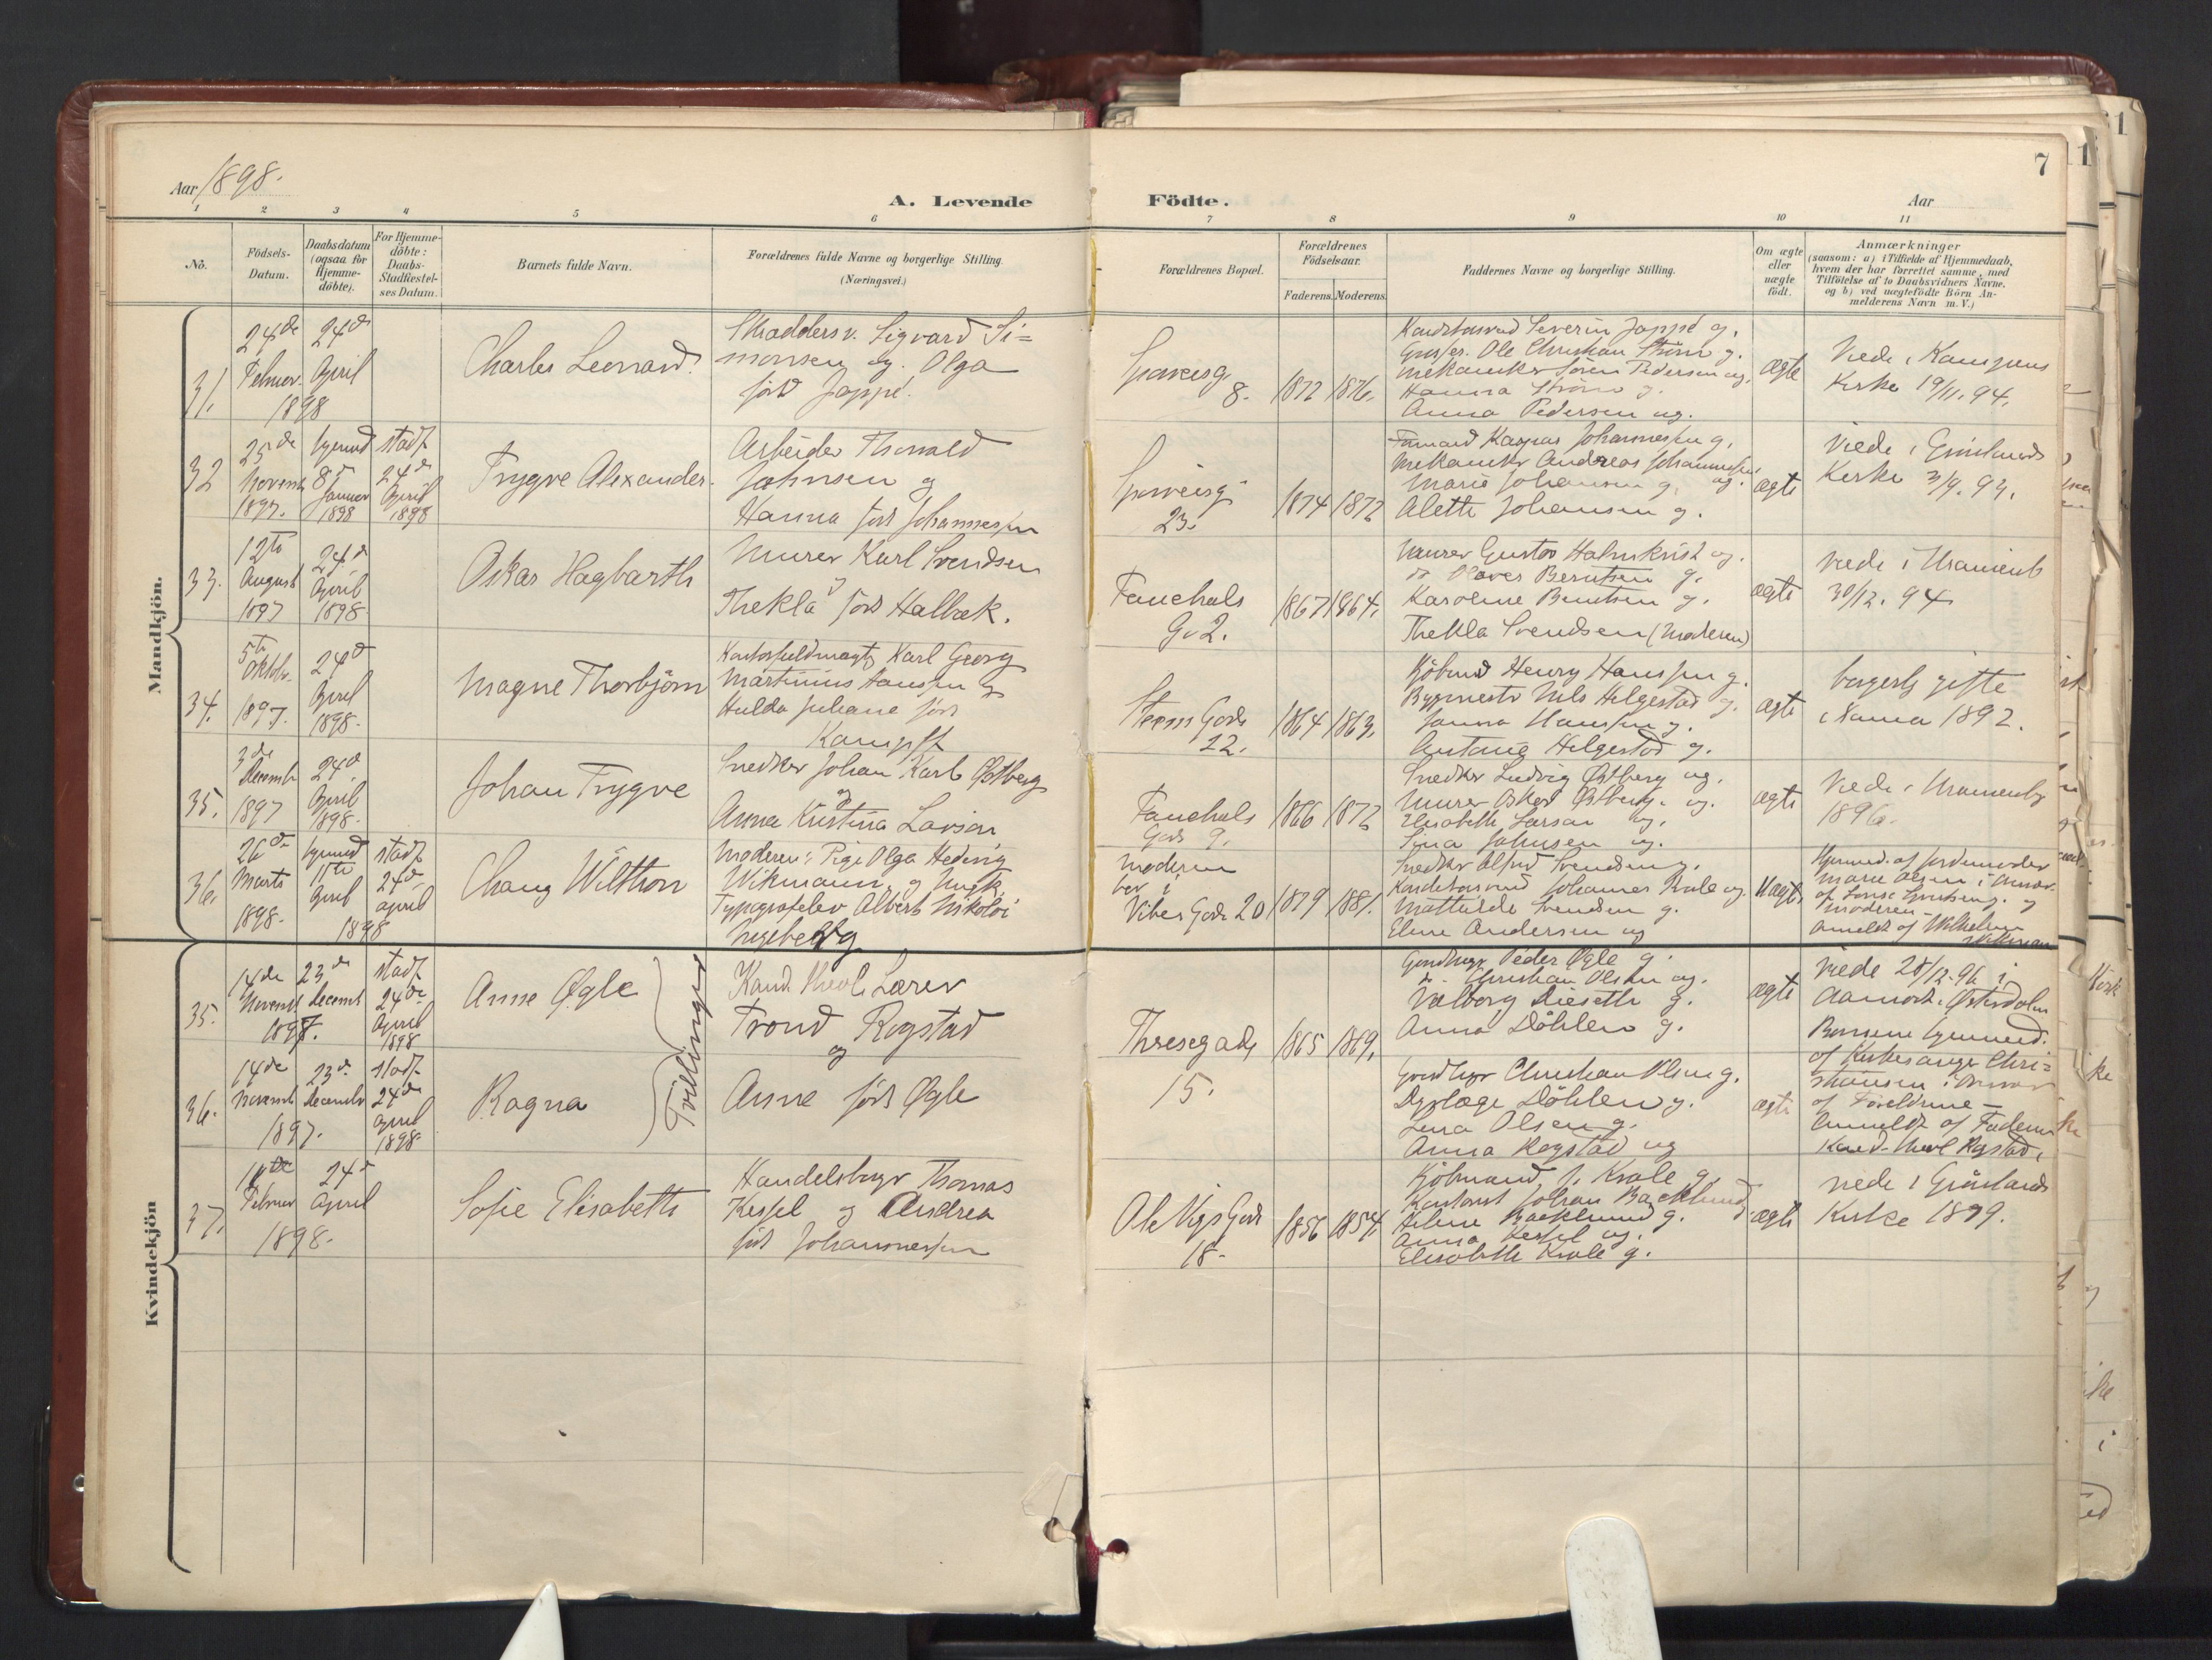 Aar 1898.
A. Levende
Födte.
Aar
7
1 2 3 4 5 6 7 8 9 10 11
No.
Födsels-
Datum.
Daabsdatum
(ogsaa for
Hjemme-
döbte).
For Hjemme-
döbte:
Daabs-
Stadfæstel-
ses Datum.
Barnets fulde Navn.
Forældrenes fulde Navne og borgerlige Stilling.
(Næringsvei.)
Forældrenes Bopæl.
Forældrenes
Födselsaar.
Faderens. Moderens.
Faddernes Navne og borgerlige Stilling.
Om ægte
eller
uægte
födt.
Anmærkninger
(saasom: a) i Tilfælde af Hjemmedaab,
hvem der har forrettet samme, med
Tilföielse af to Daabsvidners Navne,
og b) ved uægtefödte Börn An-
melderens Navn m. V.)
Mandkjön.
31.
24de
Februar
24de
April
1898
Charles Leonard
Sigvard Si=
monsen og Olga
föd Jappé.
8.
1872 1876.
Severin Jappé g.
Ole Christian Ström g.
Mekaniker Sören Pedersen ug.
Hanna Ström g.
Anna Pedersen ug.
ægte
Viede i Kampens
Kirke 19/11. 94.
32
25de
Novemb
1897.
hjemmed
8de
Januar
1898
stadf
24de
April
1898
Trygve Alexander
Arbeider Thorvald
Johnsen og
Hanna föd Johannessen
23.
1874 1872
Kaspar Johannessen g.
Mekaniker Andreas Johannessen ug.
Marie Johansen g.
Alette Johansen g.
ægte
Viede i Grönlands
Kirke
33.
12te
August
1897
24de
April
1898
Oskar Hagbarth
Murer Karl Svendsen
og
Thekla föd Halbak.
Fauchals
G. 2.
1867 1864.
Murer Gustav Halmkvist ug.
do Berntsen g.
Karoline Berntsen g.
Thekla Svendsen (Moderen)
ægte
viede i Uranienb
30/12. 94
34.
5te
Oktob.
1897.
24de
April
1898.
Magne Thorbjörn
Karl Georg
Martinius Hansen og
Hulda Juliane föd
Kamgift
Gade
22.
1864 1863.
Kjöbmd Henry Hanssen g.
Bygmester Nils Helgestad g.
Janna Hanssen g.
Helgestad g.
ægte
borgerlig gifte
1892.
35.
3de
Decemb
1897
24de
April
1898.
Johan Trygve
Snedker Johan Karl Østberg
og
Anna Kristina Larson
Fauchals
Gade 9.
1866 1872
Snedker Ludvig Østberg ug.
Murer Oskar Østberg ug.
Elisabeth Larson ug.
Johnsen ug.
ægte
Viede i Uranienby
1896.
36.
26de
Marts
1898.
hjemmed
11te
April
1898
stadf
24de
April
Wilthon
Moderen: Pige Olga Hedvig
Wikmann og
Albert Nikolai
Engeberg
Moderen
bor i
Vibes Gade 20
1879 1881.
Snedker Alfred Svendsen g.
Johannes Kvale ug.
Mathilde Svendsen g.
Eline Andersen ug
Uægte
Hjemmed. af Jordemoder
Marie Olsen
Moderen -
Anmeldt af Wilhelm
Wikmann
Kvindekjön
35.
14de
Novemb
1897.
23de
Decemb
stadf
24de
April
1898
Anne Øgle
Tvillinger
Kand. theol. Lærer
Trond Rogstad
og
Anne föd Øgle
Theresegade
15.
1865 1869.
Gaardbrgr Peder Øgle g.
do Christian Olsen ug.
Valborg Dieseth g.
Anna Döhlen g.
ægte
viede 28/12. 96 i
Aamodt i Østerdalen
Börnene hjemmed.
af Kirkesanger Chri=
stiansen
af Forældrene -
Anmeldt af Faderen
Kand. theol Rogstad.
36.
14de
Novemb
1897.
23de
Decembr
stadf
24de
April
1898
Ragna
Christian Olsen g.
Dyrlæge Döhlen g.
Lena Olsen g.
Anna Rogstad ug
ægte
37.
Februar
24de
April
1898.
Sofie Elisabeth
Handelsborger Thomas
Kessel og Andrea
föd Johannessen
Ole Vigs Gade
18.
1856 1854.
Kjöbmand J. Kvale g.
Kontorist Johan Backlund
Helene Backlund g.
Anna Kessel ug.
Elisabeth Kvale g.
ægte
viede i Grönlands
Kirke 1879.